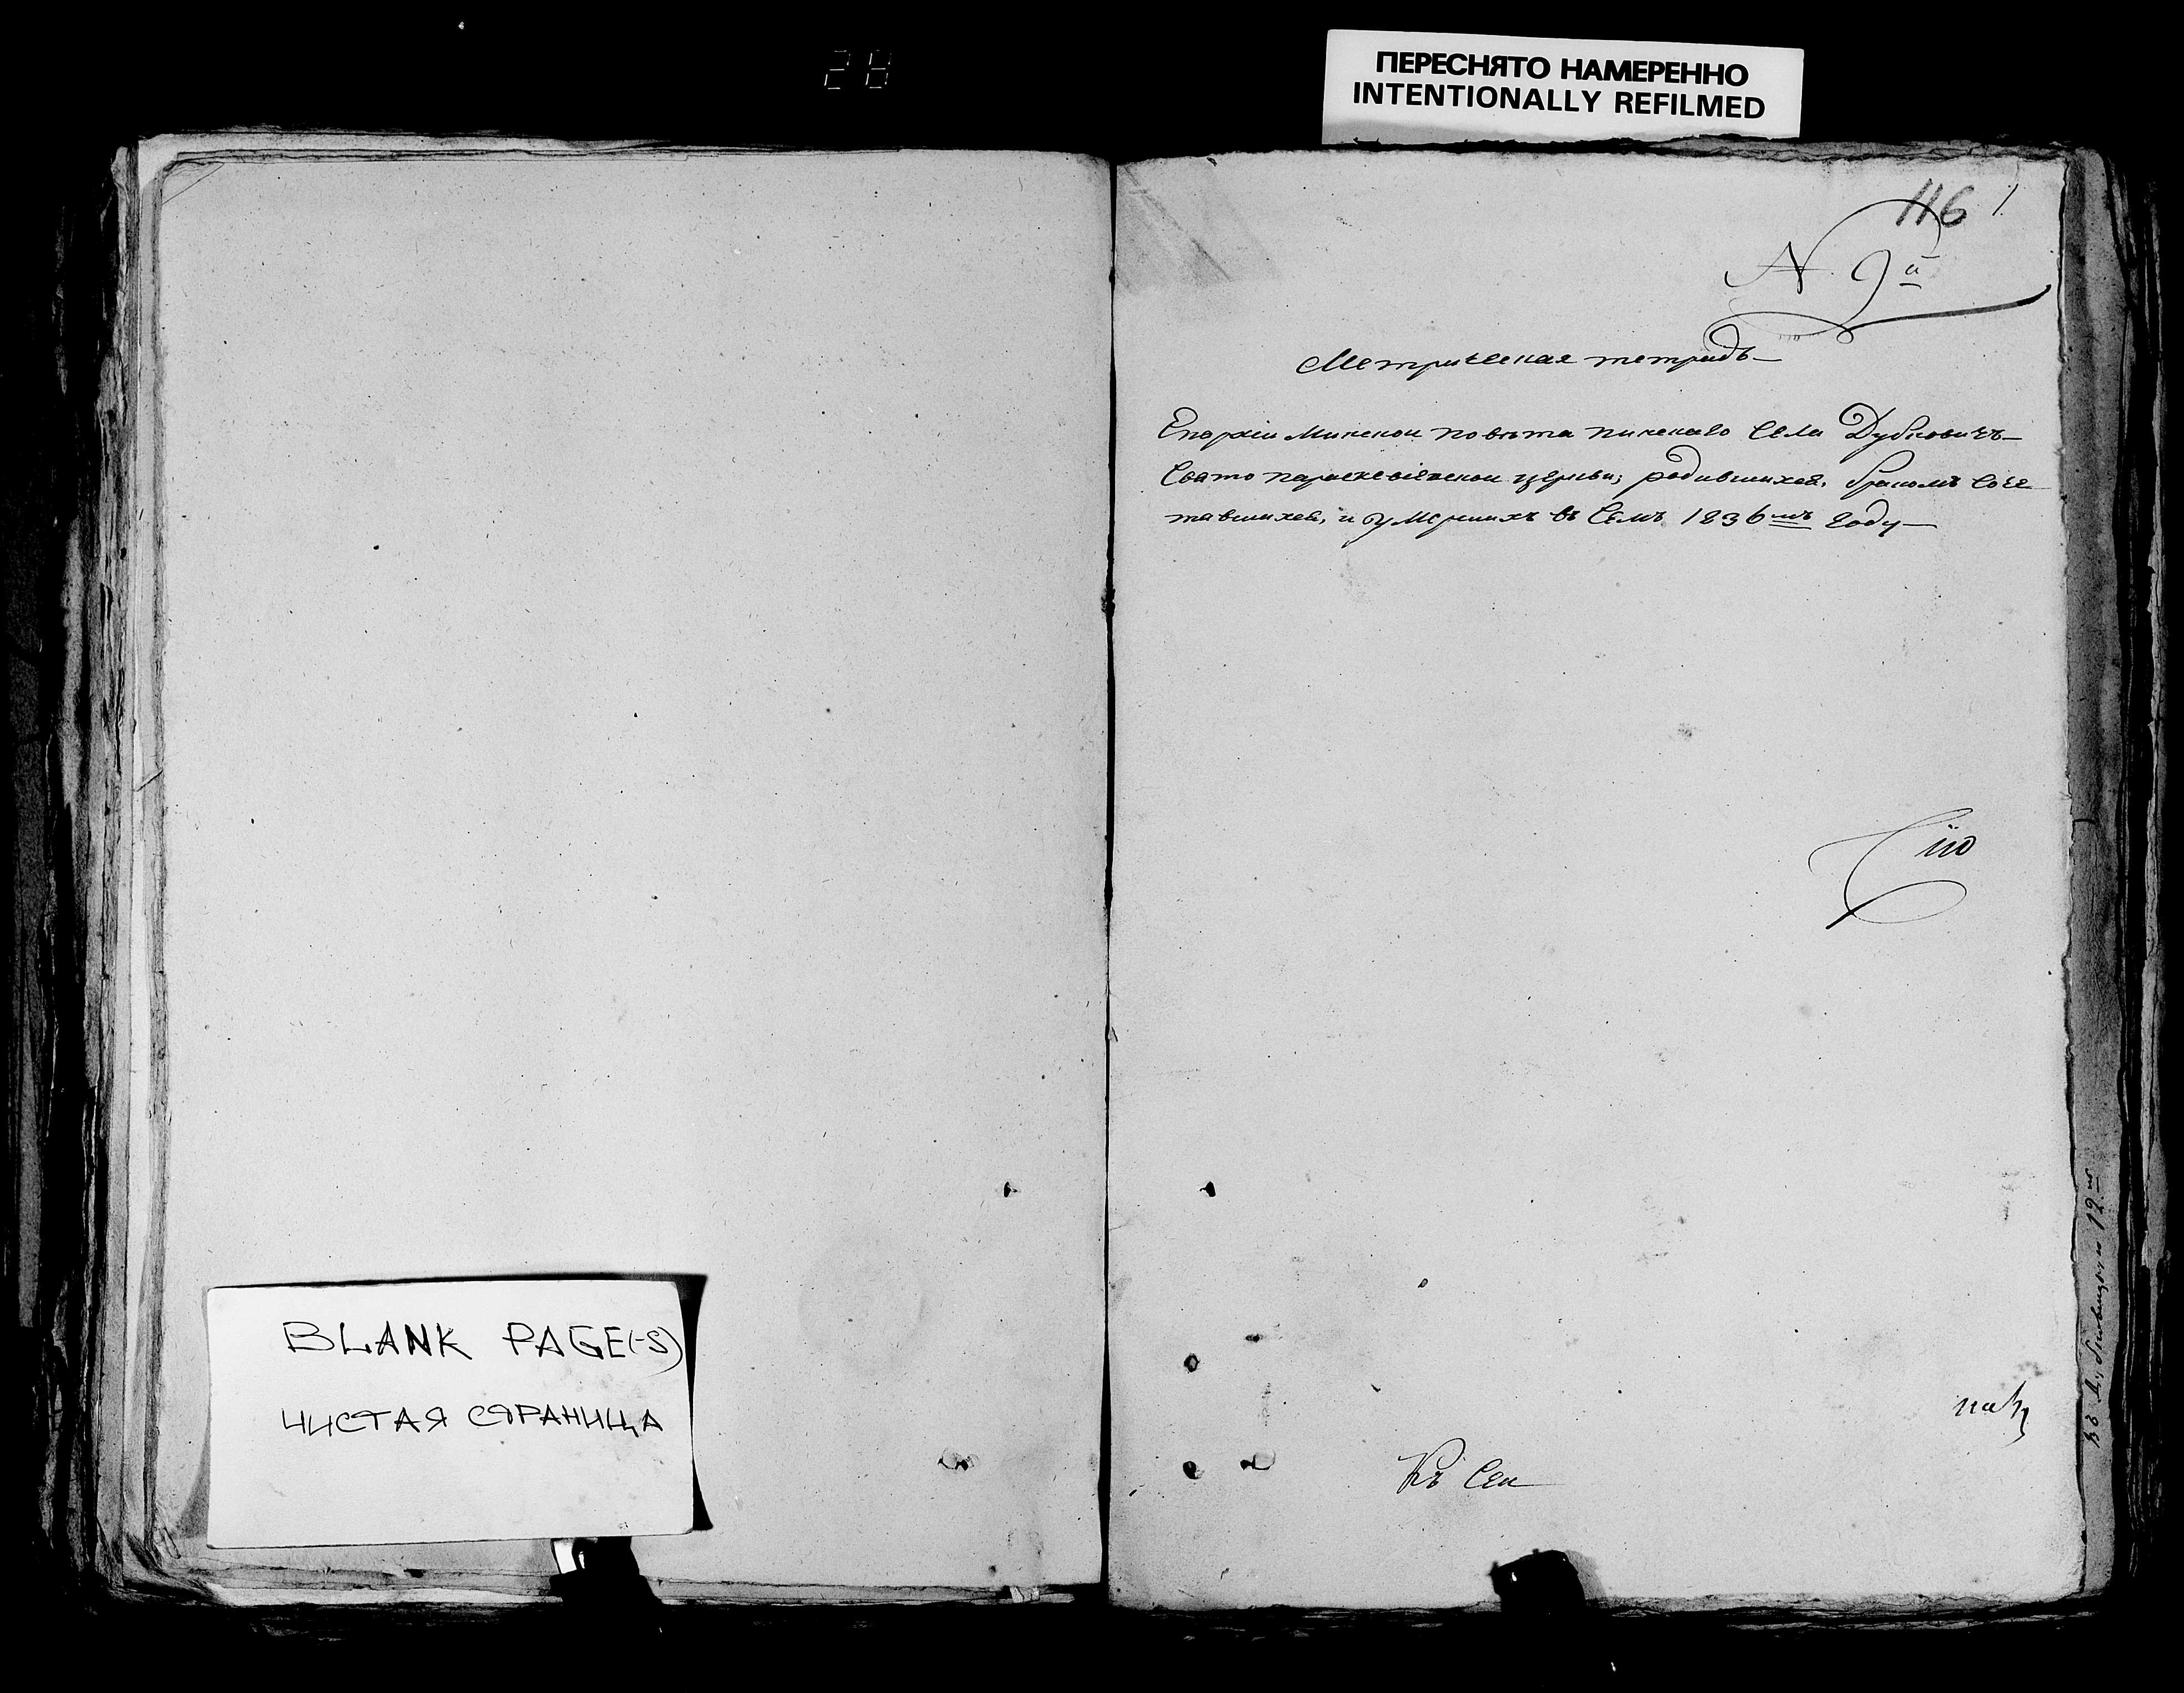 28
ПЕРЕСНЯТО НАМЕРЕННО
INTENTIONALLY REFILMED
116 1
N. 9й
Метрическая тетрадь
Епархіи Минскои повѣта пинскаго Села Дубновичъ
Свято параскевіевскои церкви; родившихся, бракомъ Соче
тавшихся, и умершихъ въ Семъ 1836мъ Году
Сію
Къ Сеи
BLANK PAGE(-S)
ЧИСТАЯ СТРАНИЦА